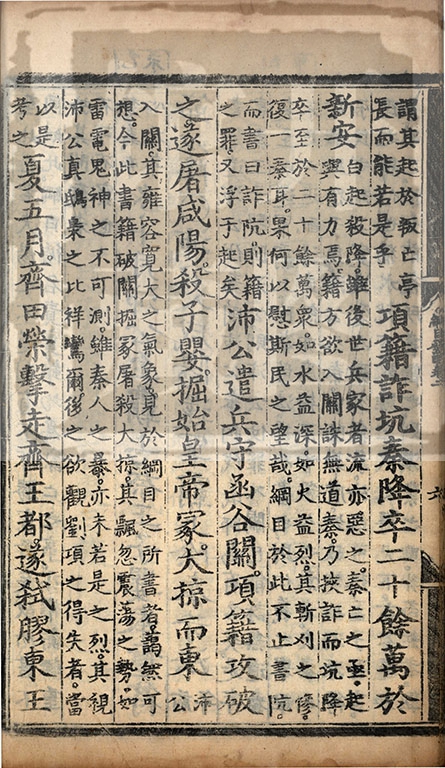 謂其起於叛亡亭
長而能若是乎
項籍詐坑秦降卒二十餘萬於
新安
白起殺降雖後世兵家者流亦惡之秦亡之亟起
與有力焉籍方欲入關誅無道秦乃挾詐而坑降
卒至於二十餘萬衆如水益深如火益烈其斬刈之慘
復一秦耳果何以慰斯民之望哉綱目於此不止書坑
而書曰詐阬則籍
之罪又浮于起矣
沛公遣兵守函谷關項籍攻破
之遂屠咸陽殺子嬰掘始皇帝冢大掠而東
沛
公
入關其雍容寬大之氣象見於綱目之所書者藹然可
想今此書籍破關掘冢屠殺大掠其飄忽震蕩之勢如
雷電鬼神之不可測雖秦人之暴亦未若是之烈其視
沛公真鴟梟之比祥鸞爾後之欲觀劉項之得失者當
以是
考之
夏五月齊田榮擊走齊王都遂弑膠東王